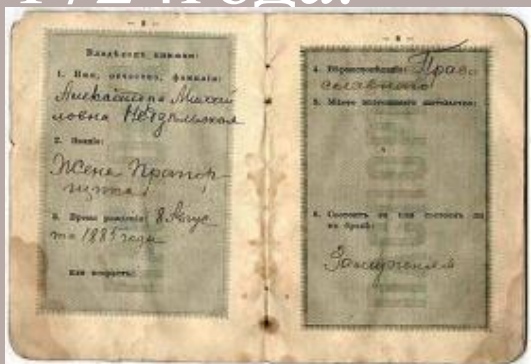 1724 года.
Владѣлецъ книжки:
1. Имя, отчество, фамилія:
Александра Михай
ловна
2. Званіе:
Жена Прапор-
щика
3. Время рожденія: 8 Авгус
та 1885 года
или возрастъ:
4. Вѣроисповѣданіе: Право
славнаго
5. Мѣсто постояннаго жительства:
6. Состоитъ ли или состоялъ ли
въ бракѣ:
Замужняя